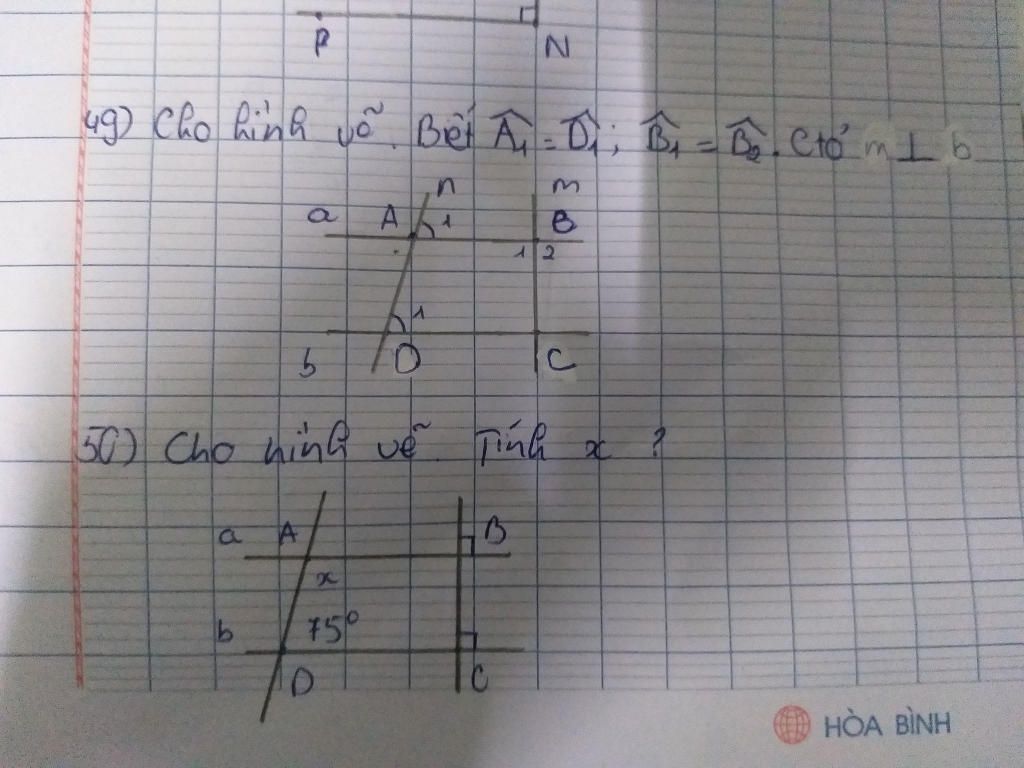 P N
49) Cho hình vẽ. Biết Â1 = D̂1; B̂1 = B̂2. Ctỏ m ⊥ b
n m
a A 1 B
1 2
1
b D C
50) Cho hình vẽ. Tính x ?
a A B
x
b 75°
D C
HÒA BÌNH